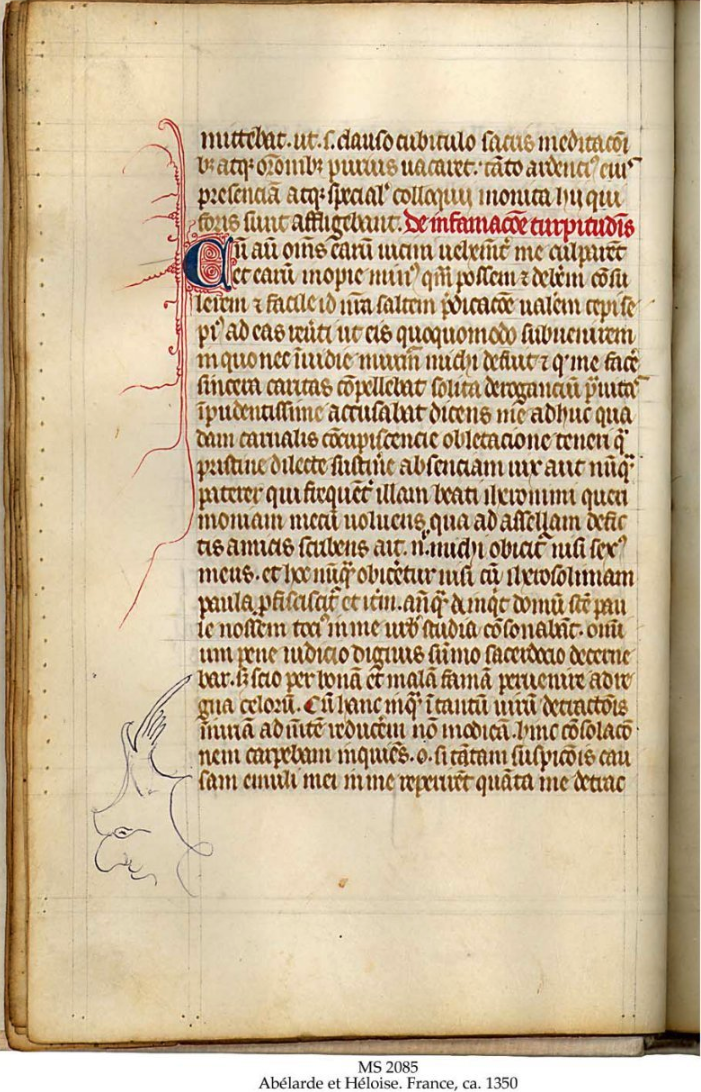 mittebat. ut. s. clauso cubitulo sacris meditacōi
bꝫ atqꝫ orōnibꝫ purius uacaret. tāto ardenciꝰ eiuˢ
presenciā atqꝫ special' colloquii monita hii qui
foris sunt affligebant. De infamacōe turpitudīs
Cū aū oīns earū uicini uehem̄t' me culparēt
et earū inopie minꝰ qm̄ possem ⁊ deberem cōsu
lerem ⁊ facile id nr̄a saltem p̄dicacōe ualerem cepi se
piꝰ ad eas reuti ut eis quoquomodo subuenirem
in quo nec īuidie murm̄ michi defuit ⁊ q' me face
sincera caritas cōpellebat solita deroganciū p̄uita
īpudentissime accusabat dicens me adhuc qua
dam carnalis cōcupiscencie oblectacione teneri q̄
pristine dilecte sustin̄e absenciam uix aut nūqꝫ
paterer qui frequēt' illam beati iheronimi queri
moniam mecū uoluens, qua ad assellam de fic
tis amicis scribens ait. n. michi obicit' nisi sexꝰ
meus. et hoc nūqꝫ obicētur nisi cū iherosolimam
paula pficiscit' et it'm. anqꝫ dominq' domū scē pau
le nossem tociꝰ in me urb' studia cōsonabāt. omī
um pene iudicio dignus sūmo sacerdocio decerne
bar. sꝫ scio per bonā et malā famā peruenire ad re
gna celorū. Cū hanc inqꝫ ī tantū uirū detractōis
iniuriā ad mēte reducerem nō modicā. hinc cōsolacō
nem carpebam inquiēs. o. si tātam suspicōis cau
sam emuli mei in me reperirēt quāta me detrac
MS 2085
Abélarde et Héloise. France, ca. 1350